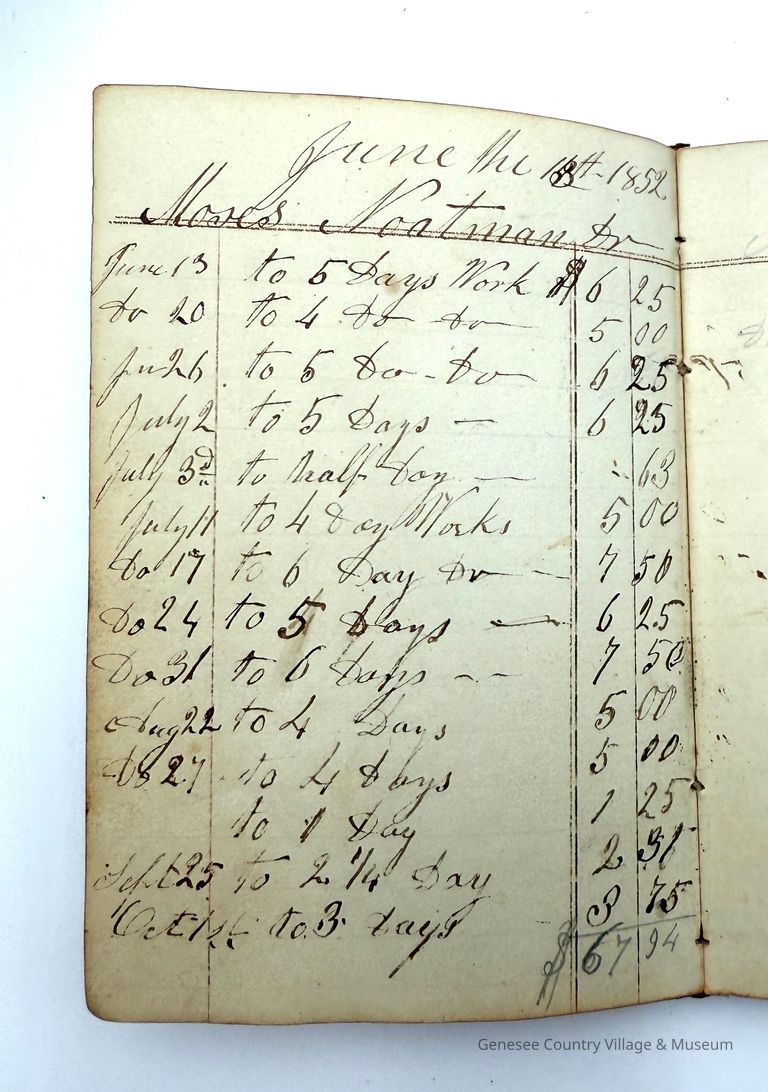 June the 13th 1852
Moses Noatman Dr
June 13 to 5 Days Work $ 6 25
Do 20 to 4 Do Do 5 00
Ju 26 to 5 Do - Do 6 25
July 2 to 5 Days — 6 25
July 3d to half Day — 63
July 11 to 4 Day Works 5 00
Do 17 to 6 Day Do — 7 50
Do 24 to 5 Days — 6 25
Do 31 to 6 Days - - 7 50
Aug 22 to 4 Days 5 00
Do 27 to 4 Days 5 00
to 1 Day 1 25
Sept 25 to 2 1/4 Day 2 31
Oct 1st to 3 days 3 75
$ 67 94
Genesee Country Village & Museum